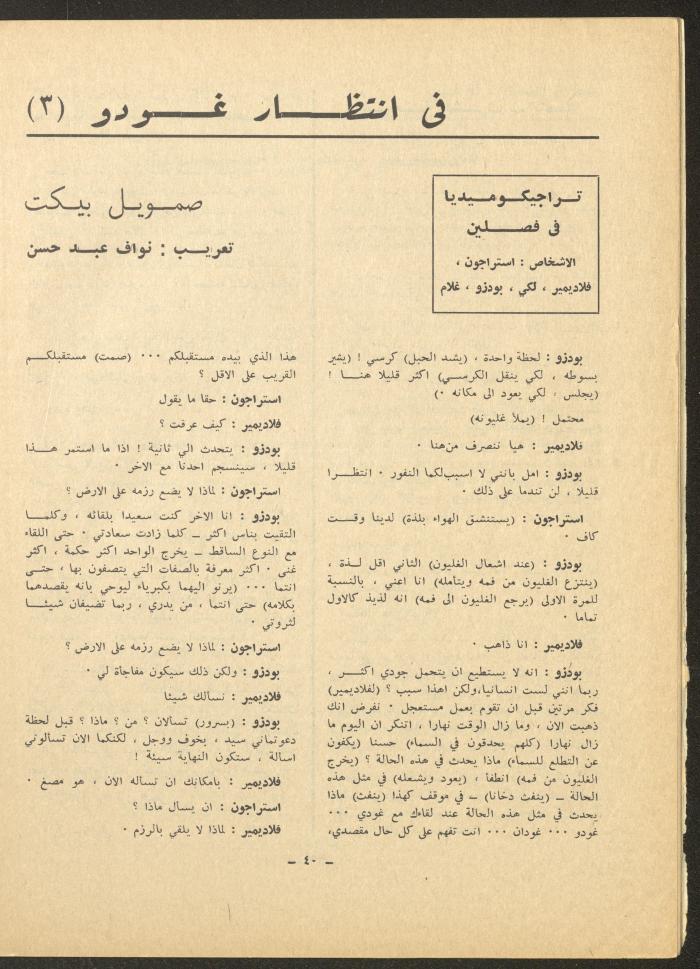 فى انتظار غودو (٣)
تراجيكوميديا
فى فصلين
الاشخاص : استراجون ،
فلاديمير ، لكي ، بودزو ، غلام
صمويل بيكت
تعريب : نواف عبد حسن
بودزو : لحظة واحدة ، (يشد الحبل) كرسي ! (يشير
بسوطه ، لكي ينقل الكرسي) اكثر قليلا هنا !
(يجلس ، لكي يعود الى مكانه ٠)
محتمل ! (يملأ غليونه)
فلاديمير : هيا ننصرف من هنا ٠
بودزو : امل بانني لا اسبب لكما النفور ٠ انتظرا
قليلا ، لن تندما على ذلك ٠
استراجون : (يستنشق الهواء بلذة) لدينا وقت
كاف ٠
بودزو : (عند اشعال الغليون) الثاني اقل لذة ،
(ينتزع الغليون من فمه ويتأمله) انا اعني ، بالنسبة
للمرة الاولى (يرجع الغليون الى فمه) انه لذيذ كالاول
تماما ٠
فلاديمير : انا ذاهب ٠
بودزو : انه لا يستطيع ان يتحمل جودي اكثر ،
ربما انني لست انسانيا،ولكن اهذا سبب ؟ (لفلاديمير)
فكر مرتين قبل ان تقوم بعمل مستعجل ٠ نفرض انك
ذهبت الان ، وما زال الوقت نهارا ، اتنكر ان اليوم ما
زال نهارا (كلهم يحدقون في السماء) حسنا (يكفون
عن التطلع للسماء) ماذا يحدث في هذه الحالة ؟ (يخرج
الغليون من فمه) انطفأ ، (يعود ويشعله) في مثل هذه
الحالة – (ينفث دخانا) – في موقف كهذا (ينفث) ماذا
يحدث في مثل هذه الحالة عند لقاءك مع غودي ٠٠٠
غودو ٠٠٠ غودان ٠٠٠ انت تفهم على كل حال مقصدي،
هذا الذي بيده مستقبلكم ٠٠٠ (صمت) مستقبلكم
القريب على الاقل ؟
استراجون : حقا ما يقول
فلاديمير : كيف عرفت ؟
بودزو : يتحدث الي ثانية ! اذا ما استمر هذا
قليلا ، سينسجم احدنا مع الاخر ٠
استراجون : لماذا لا يضع رزمه على الارض ؟
بودزو : انا الاخر كنت سعيدا بلقائه ، وكلما
التقيت بناس اكثر – كلما زادت سعادتي ٠ حتى اللقاء
مع النوع الساقط – يخرج الواحد اكثر حكمة ، اكثر
غنى ٠ اكثر معرفة بالصفات التي يتصفون بها ، حتى
انتما ٠٠٠ (يرنو اليهما بكبرياء ليوحي بانه يقصدهما
بكلامه) حتى انتما ، من يدري ، ربما تضيفان شيئا
لثروتي ٠
استراجون : لماذا لا يضع رزمه على الارض ؟
بودزو : ولكن ذلك سيكون مفاجاة لي ٠
فلاديمير : نسالك شيئا
بودزو : (بسرور) تسالان ؟ من ؟ ماذا ؟ قبل لحظة
دعوتماني سيد ، بخوف ووجل ، لكنكما الان تسالوني
اسالة ، ستكون النهاية سيئة !
فلاديمير : بامكانك ان تساله الان ، هو مصغ ٠
استراجون : ان يسال ماذا ؟
فلاديمير : لماذا لا يلقي بالرزم ٠
– ٤٠ –